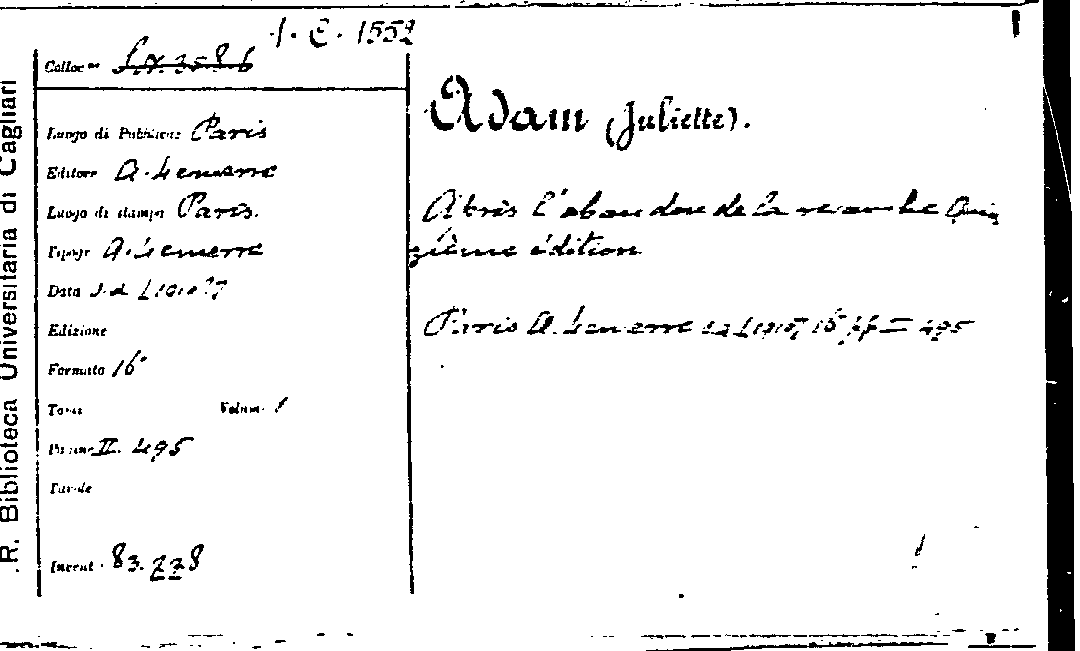 1. C. 1552
R. Biblioteca Universitaria di Cagliari
Colloc.ne S.N. 358.6
Luogo di Pubblicaz. Paris
Editore A. Lemerre
Luogo di stampa Paris.
Tipogr. A. Lemerre
Data s.d. [1910?]
Edizione
Formato 16°
Tomi Volumi 1
Pagine II. 495
Tavole
Invent. 83.778
Adam (Juliette).
Après l'abandon de la revanche Quin
zième édition
Paris A. Lemerre s.d. 16° II = 495